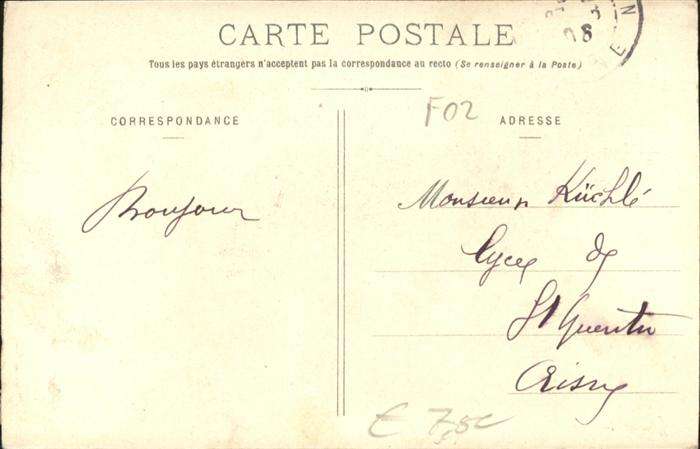 CARTE POSTALE
Tous les pays étrangers n'acceptent pas la correspondance au recto (Se renseigner à la Poste)
F02
CORRESPONDANCE
ADRESSE
Bonjour
Monsieur Küchlé
Lycée de
St Quentin
Aisne
€ 7,50